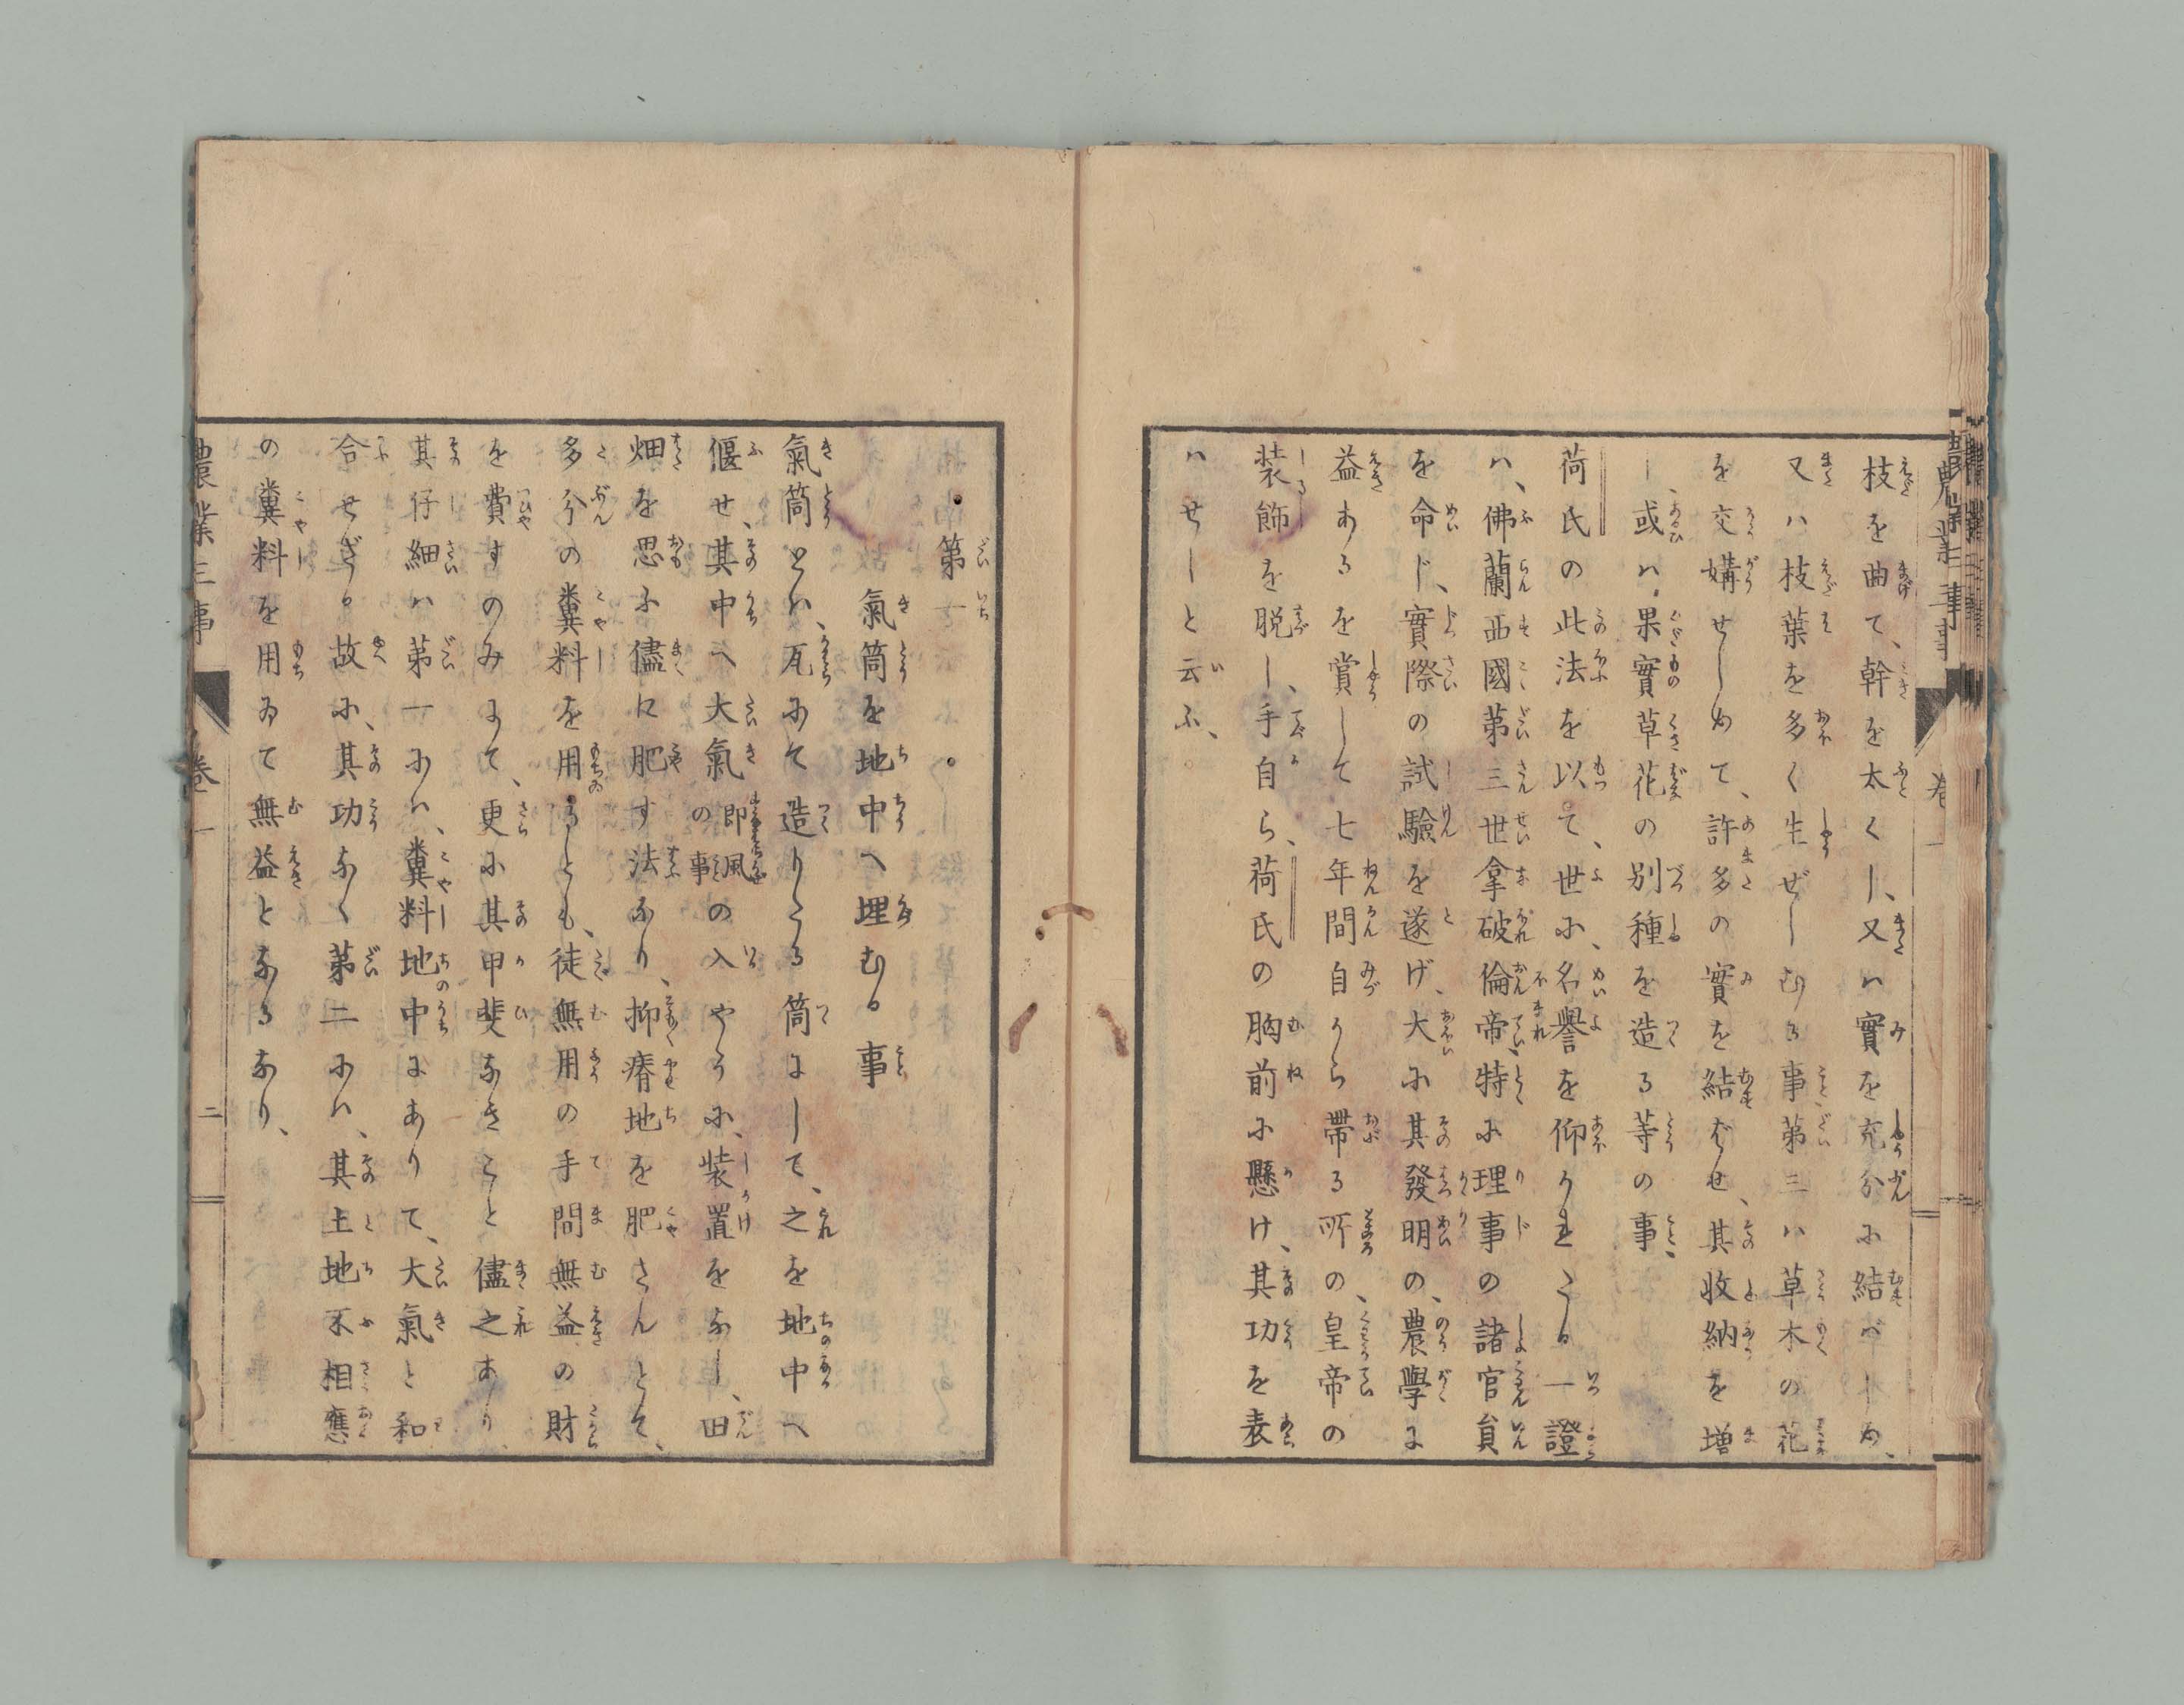 枝を曲て、幹を太くし、又ハ實を充分ふ結バしめ、
又ハ枝葉を多く生ぜしむる事第三ハ草木の花
を交媾せしめて、許多の實を結ばせ、其收納を増
し、或ハ果實草花の別種を造る等の事、
荷氏の此法を以て、世ふ、名譽を仰ぐれたる一證
ハ、佛蘭西國第三世拿破倫帝、特ふ理事の諸官員
を命じ、實際の試驗を遂げ、大ふ其發明の、農學に
益あるを賞して七年間自から帶る所の、皇帝の
装飾を脱し、手自ら、荷氏の胸前ふ懸け、其功を表
ハせしと云ふ、
第一
氣筒を地中へ埋むる事
氣筒とハ、瓦ふて造りたる筒にして、之を地中へ
偃せ、其中へ大氣即風の事の入やうふ、装置をなし、田
畑を思ふ儘に肥す法なり、抑瘠地を肥さんとて、
多分の糞料を用るとも、徒無用の手間無益の財
を費すのみにて、更ふ其甲斐なきこと儘之あり、
其仔細ハ第一ふハ、糞料地中にありて、大氣と和
合せざる故ふ、其功なく第二ふハ、其土地不相應
の糞料を用ゐて無益となるなり、
農業三事
卷一
二